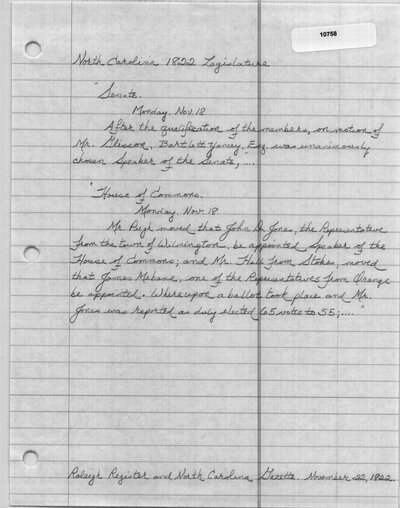 10758
North Carolina 1822 Legislature
"Senate.
Monday, Nov. 18
After the qualification of the members, on motion of
Mr. Glisson, Bartlett Yancey, Esq. was unanimously
chosen Speaker of the Senate, ....
"House of Commons.
Monday, Nov. 18
Mr. Pugh moved that John D. Jones, the Representative
from the town of Wilmington, be appointed Speaker of the
House of Commons; and Mr. Hall from Stokes, moved
that James Mebane, one of the Representatives from Orange
be appointed. Whereupon a ballot took place and Mr.
Jones was reported as duly elected 65 votes to 55; ...."
Raleigh Register and North Carolina Gazette. November 22, 1822.